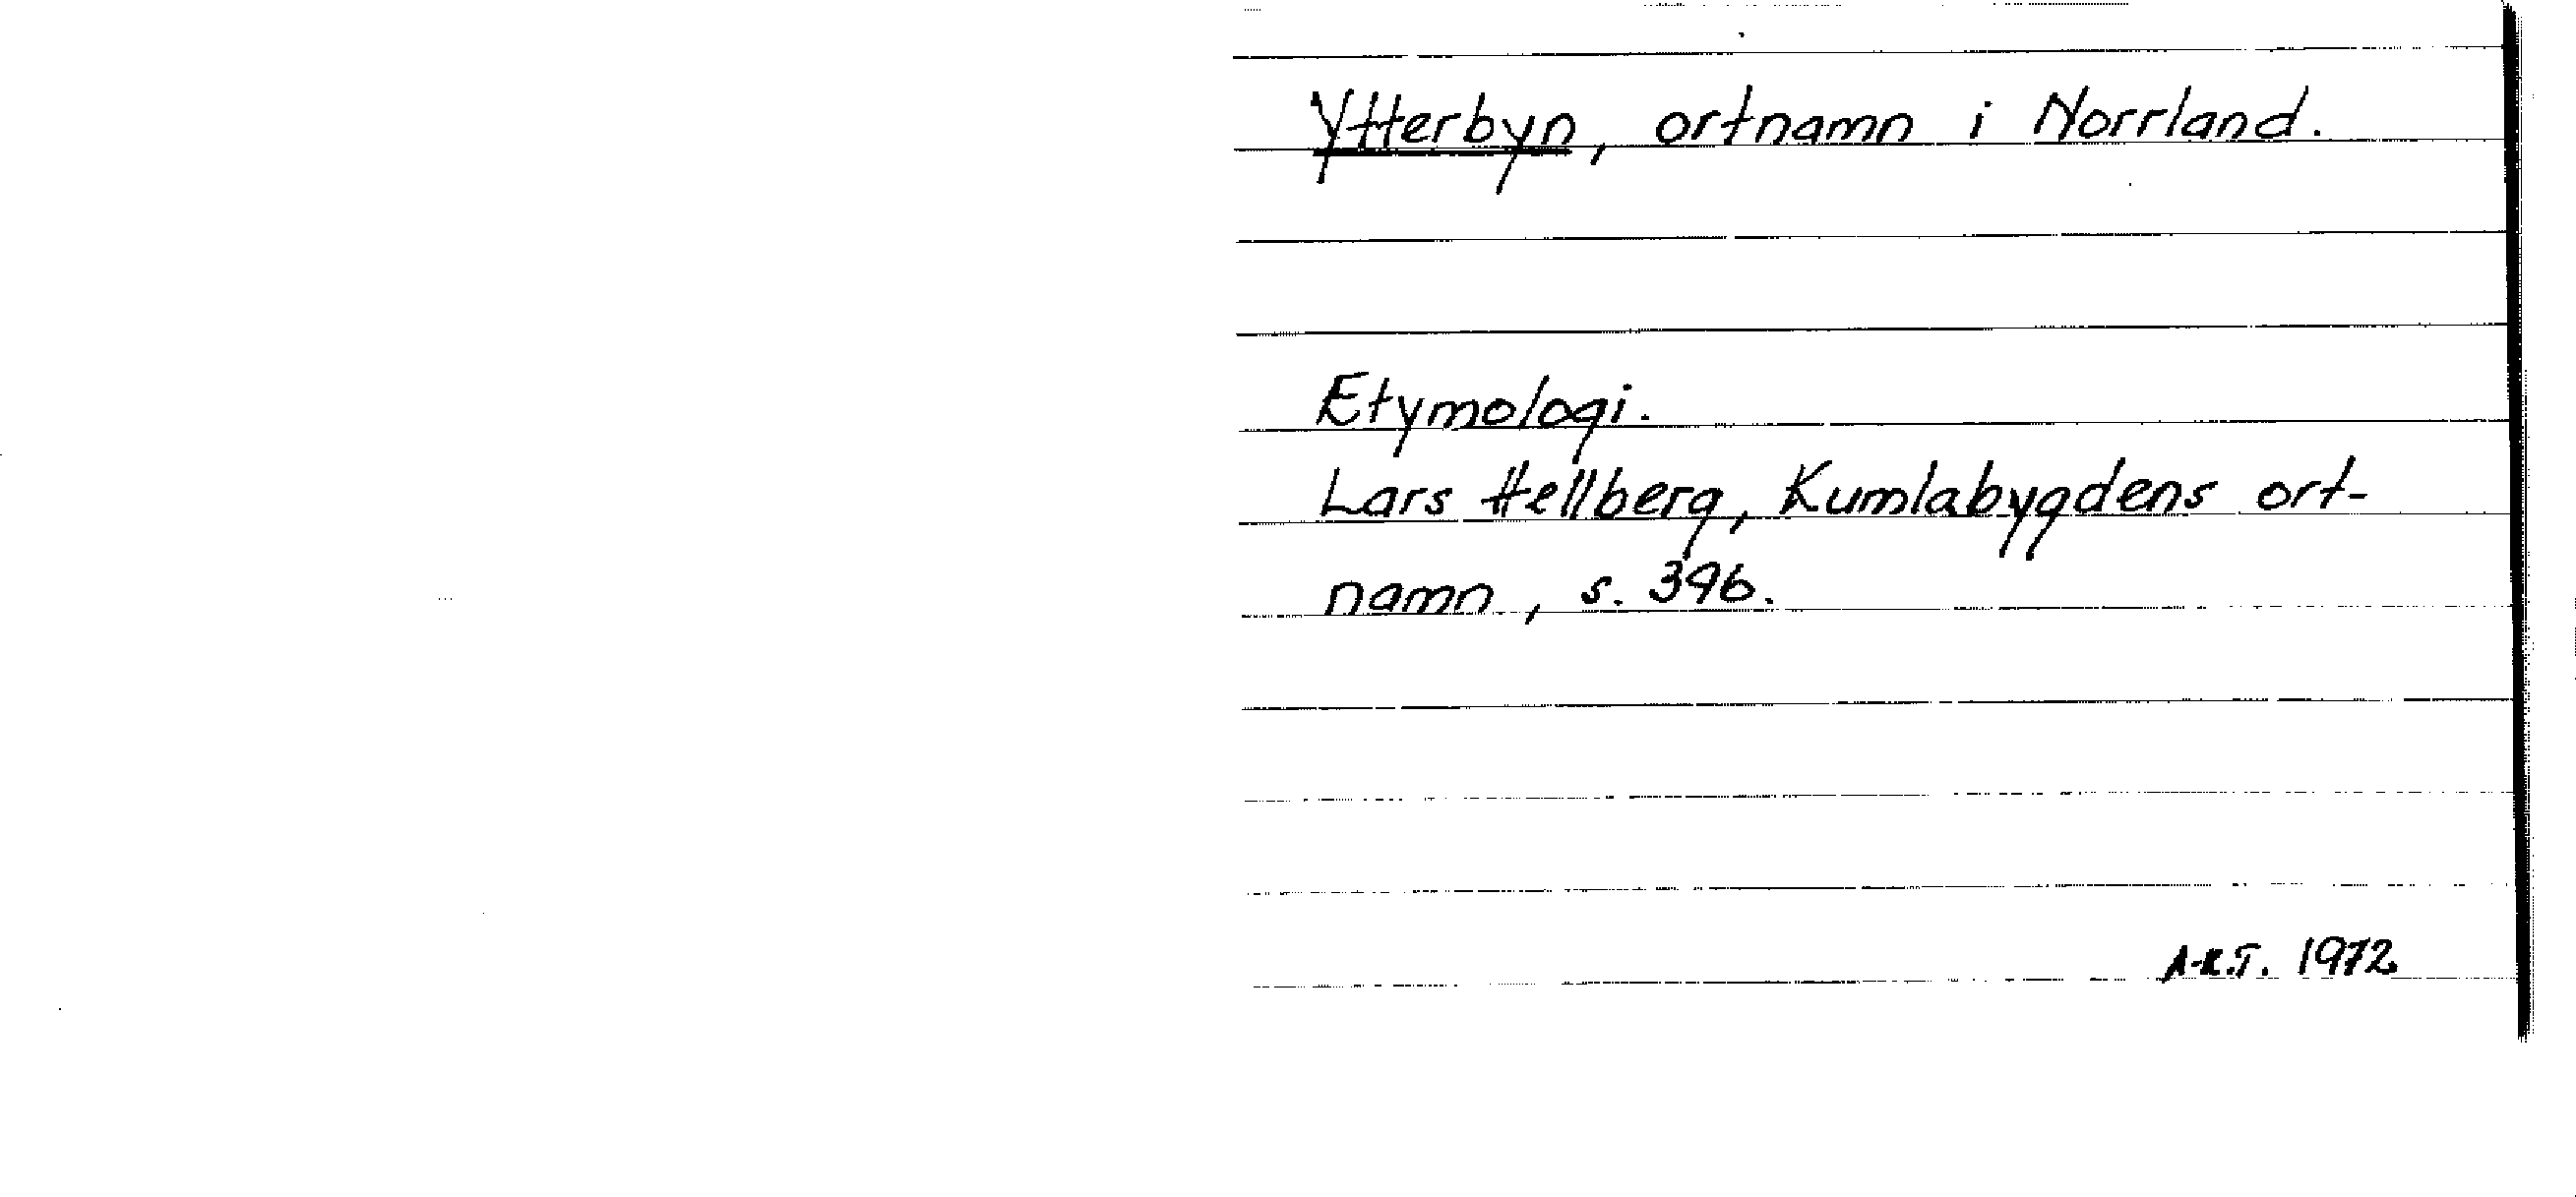 Ytterbyn, ortnamn i Norrland.
Etymologi.
Lars Hellberg, Kumlabygdens ort-
namn, s. 396.
A-K.T. 1972